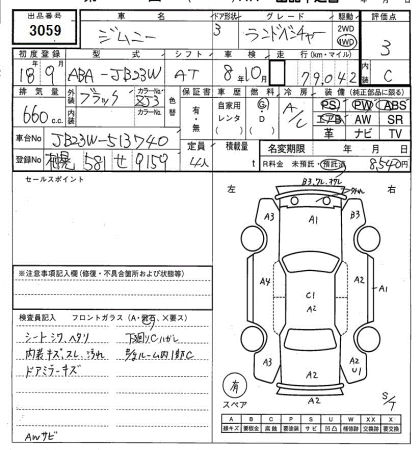 出品番号 車名 ドア形状 グレード 駆動 評価点
3059 ジムニー 3 ランドベンチャー 2WD 4WD 3
初度登録 型式 シフト 車検 走行(km・マイル) 内装
18年9月 ABA-JB23W AT 8年10月 79,042 C
排気量 外装 ブラック カラーNo. ZJ3 色替 保証書 車歴 燃料 冷房 装備(純正部品に限る)
660 c.c. 内装 カラーNo. 有・無 自家用 レンタ G・D A/C PS PW ABS
エアB AW SR
革 ナビ TV
車台No JB23W-513740 定員 積載量 名変期限 年 月 日
登録No 札幌 581 せ 9159 4人 t R料金 未預託・預託済 8,540円
セールスポイント
左 右
B3
A3 A1 B3
A4 C1 A2 A2 A1
A3 A2 A2 U1
A2
有
スペア
S/T
※注意事項記入欄(修復・不具合箇所および状態等)
検査員記入 フロントガラス(A・飛石、X要ス)
シートシワ、ヘタリ 下廻りCハガレ
内装キズスレ、汚れ 
ドアミラーキズ
AWサビ
A B C P S U W X XX
線キズ 要板金 腐食 要塗装 サビ 凹凸 補修跡 要交換 交換済